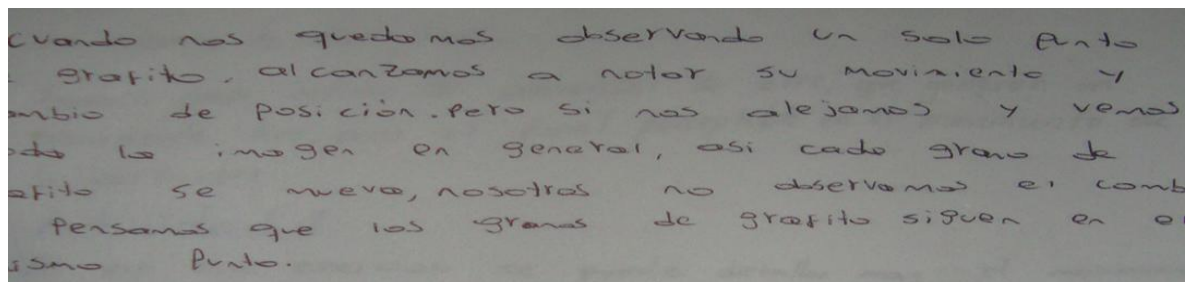 cuando nos quedamos observando un solo punto
grafito. alcanzamos a notar su movimiento y
mbio de posición. Pero si nos alejamos y vemos
la imagen en general, asi cada grano de
afito se mueva, nosotros no observamos el camb
Pensamos que los granos de grafito siguen en el
ismo Punto.